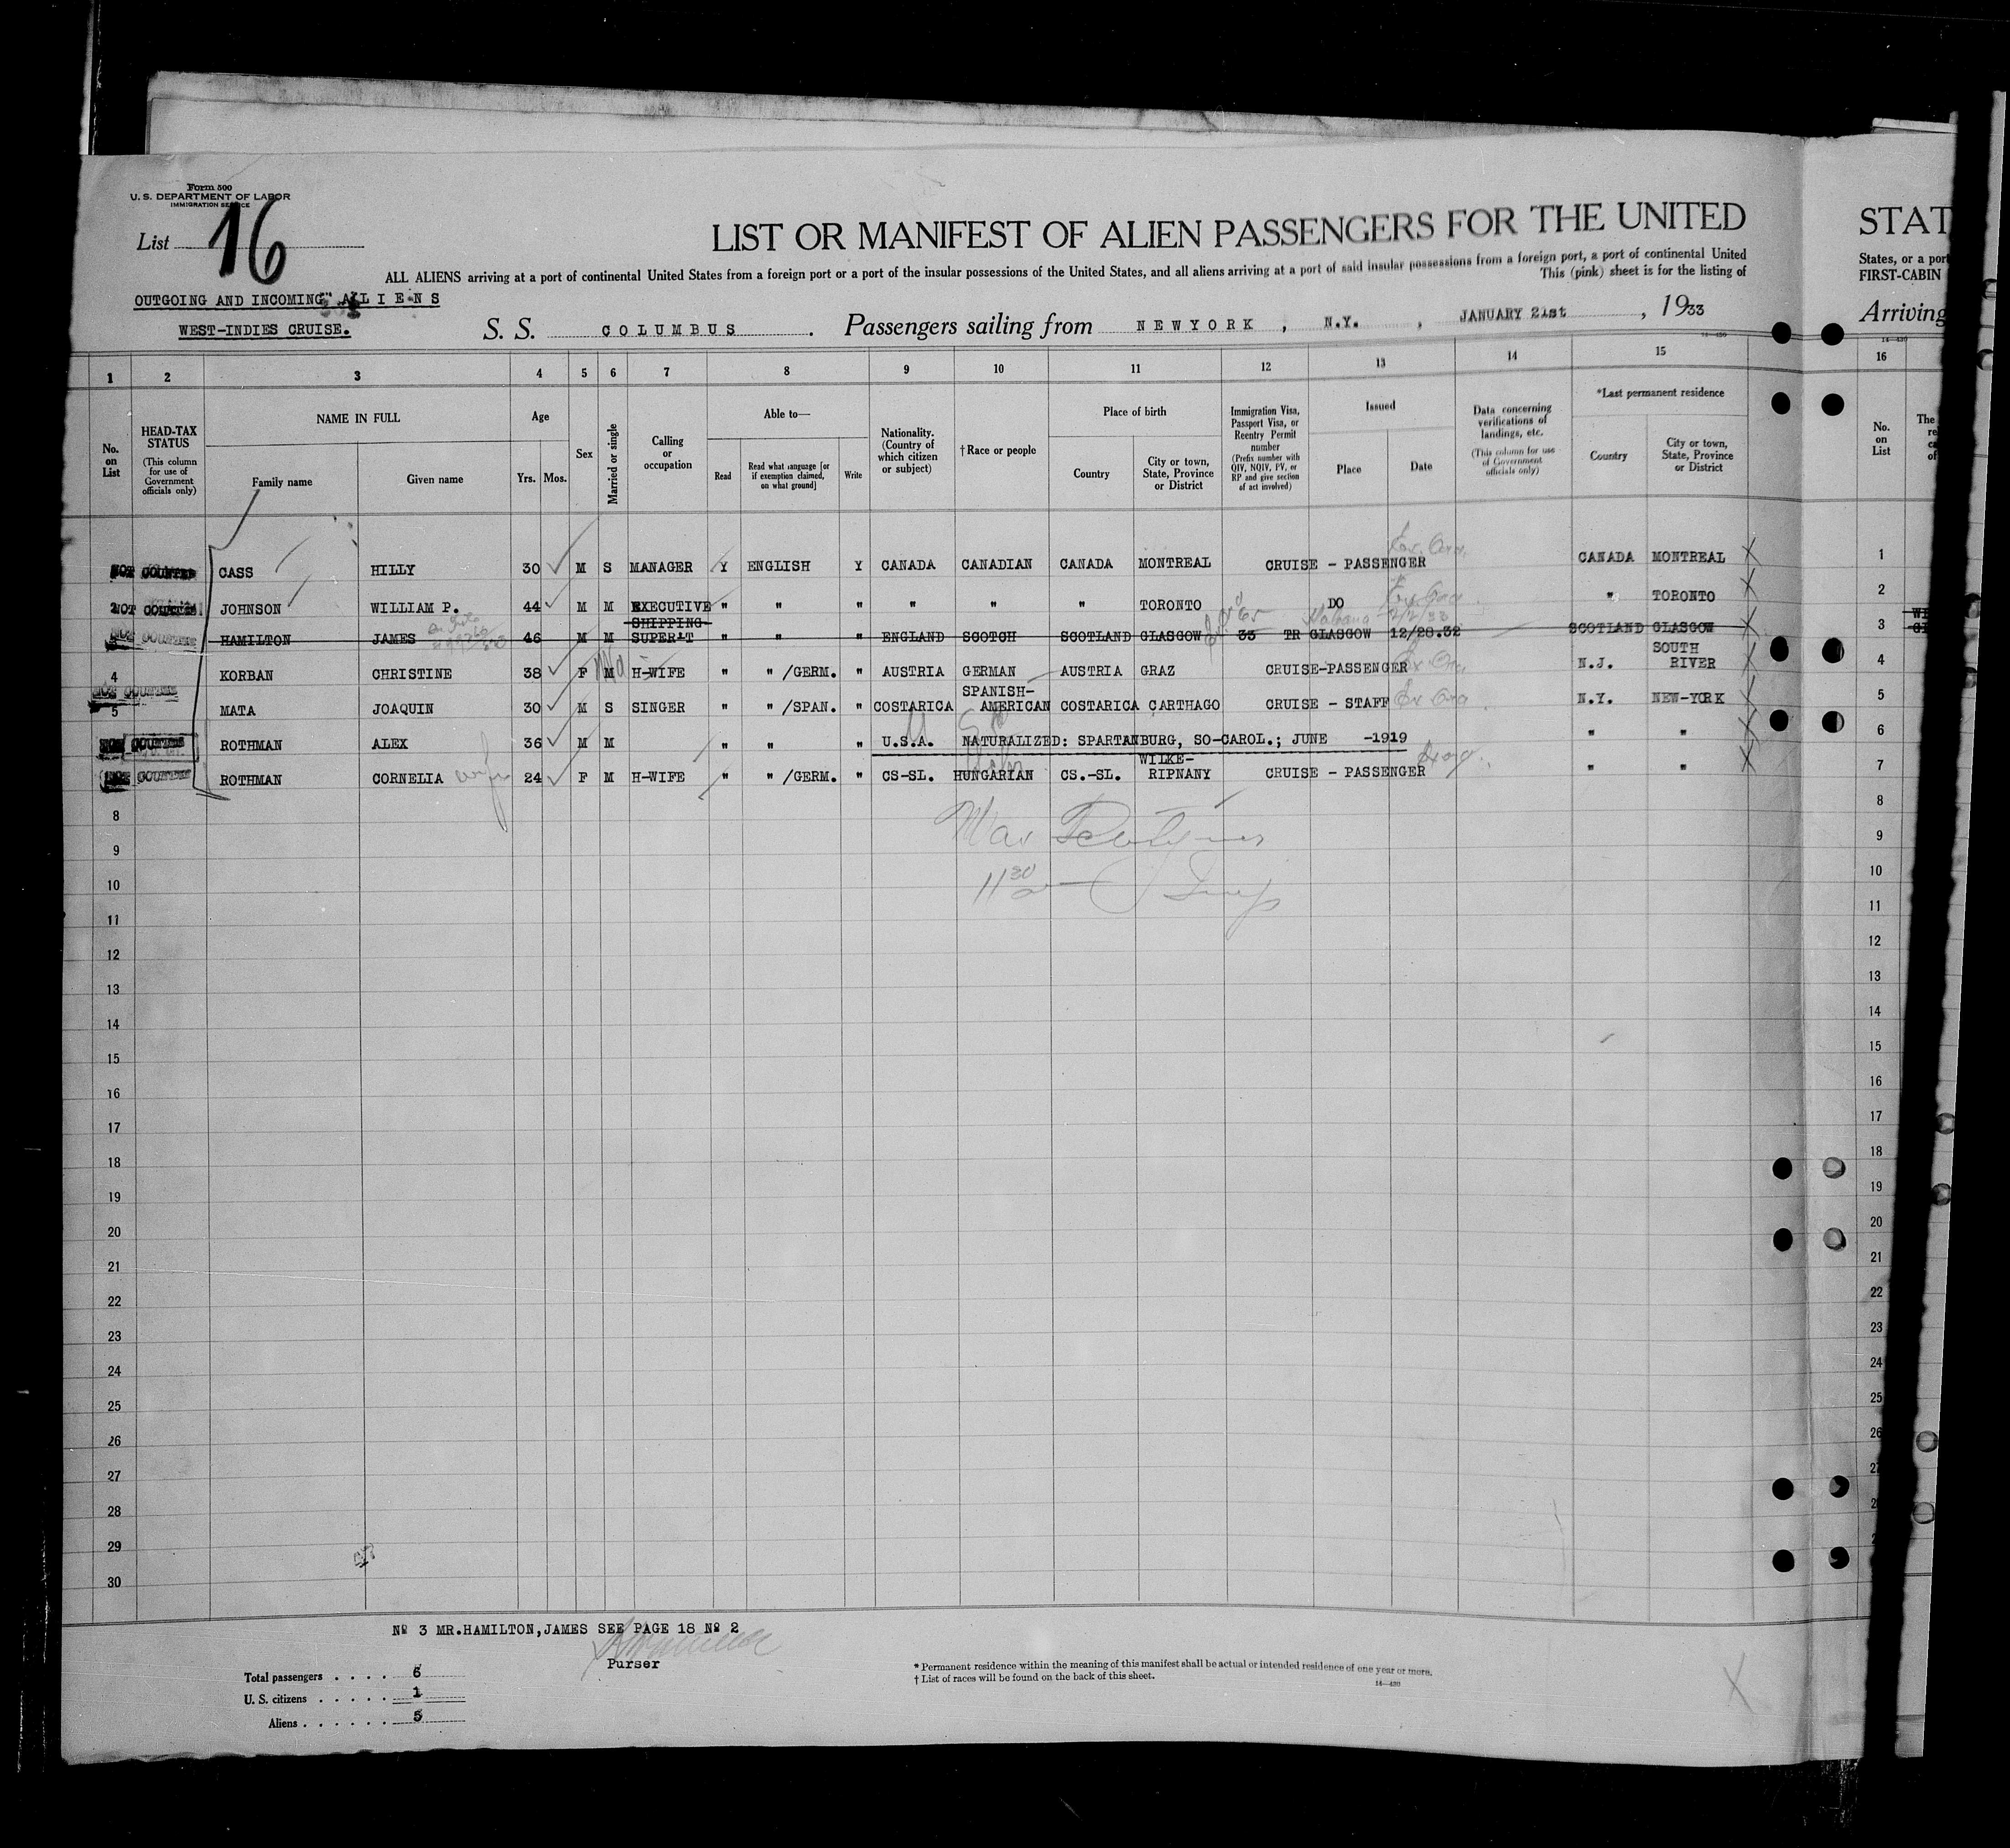 Form 500
U. S. DEPARTMENT OF LABOR
IMMIGRATION SERVICE
List 16
LIST OR MANIFEST OF ALIEN PASSENGERS FOR THE UNITED
STAT
ALL ALIENS arriving at a port of continental United States from a foreign port or a port of the insular possessions of the United States, and all aliens arriving at a port of said insular possessions from a foreign port, a port of continental United
States, or a port
This (pink) sheet is for the listing of
FIRST-CABIN
OUTGOING AND INCOMING ALIENS
WEST-INDIES CRUISE.
S. S. COLUMBUS. Passengers sailing from NEWYORK, N.Y., JANUARY 21st, 1933
Arriving
14—430
14—430
1 2 3 4 5 6 7 8 9 10 11 12 13 14 15 16
No. on List
HEAD-TAX STATUS
(This column for use of Government officials only)
NAME IN FULL
Family name
Given name
Age
Yrs. Mos.
Sex
Married or single
Calling or occupation
Able to—
Read
Read what language [or if exemption claimed, on what ground]
Write
Nationality. (Country of which citizen or subject)
† Race or people
Place of birth
Country
City or town, State, Province or District
Immigration Visa, Passport Visa, or Reentry Permit number
(Prefix number with QIV, NQIV, PV, or RP and give section of act involved)
Issued
Place
Date
Data concerning verifications of landings, etc.
(This column for use of Government officials only)
*Last permanent residence
Country
City or town, State, Province or District
No. on List
The
NOT COUNTED CASS HILLY 30 M S MANAGER Y ENGLISH Y CANADA CANADIAN CANADA MONTREAL CRUISE - PASSENGER CANADA MONTREAL X 1
2 NOT COUNTED JOHNSON WILLIAM P. 44 M M EXECUTIVE " " " " " " TORONTO DO " TORONTO X 2
SHIPPING-
3 NOT COUNTED HAMILTON JAMES 46 M M SUPER'T " " " ENGLAND SCOTCH SCOTLAND GLASGOW 33 TR GLASGOW 12/28.32 SCOTLAND GLASGOW X 3
Habana 2/2/33
SOUTH
4 KORBAN CHRISTINE 38 F M H-WIFE " " /GERM. " AUSTRIA GERMAN AUSTRIA GRAZ CRUISE-PASSENGER N.J. RIVER X 4
NOT COUNTED
SPANISH-
5 MATA JOAQUIN 30 M S SINGER " " /SPAN. " COSTARICA AMERICAN COSTARICA CARTHAGO CRUISE - STAFF N.Y. NEW-YORK X 5
NON COUNTED ROTHMAN ALEX 36 M M " " " U.S.A. NATURALIZED: SPARTANBURG, SO-CAROL.; JUNE -1919 " " X 6
WILKE-
NOT COUNTED ROTHMAN CORNELIA wife 24 F M H-WIFE " " /GERM. " CS-SL. HUNGARIAN CS.-SL. RIPNANY CRUISE - PASSENGER " " X 7
8 8
9 9
10 10
11 11
12 12
13 13
14 14
15 15
16 16
17 17
18 18
19 19
20 20
21 21
22 22
23 23
24 24
25 25
26 26
27
28
29
30
Nº 3 MR.HAMILTON,JAMES SEE PAGE 18 Nº 2
Purser
Total passengers . . . . 6
U. S. citizens . . . . . 1
Aliens . . . . . . 5
* Permanent residence within the meaning of this manifest shall be actual or intended residence of one year or more.
† List of races will be found on the back of this sheet.
14—430